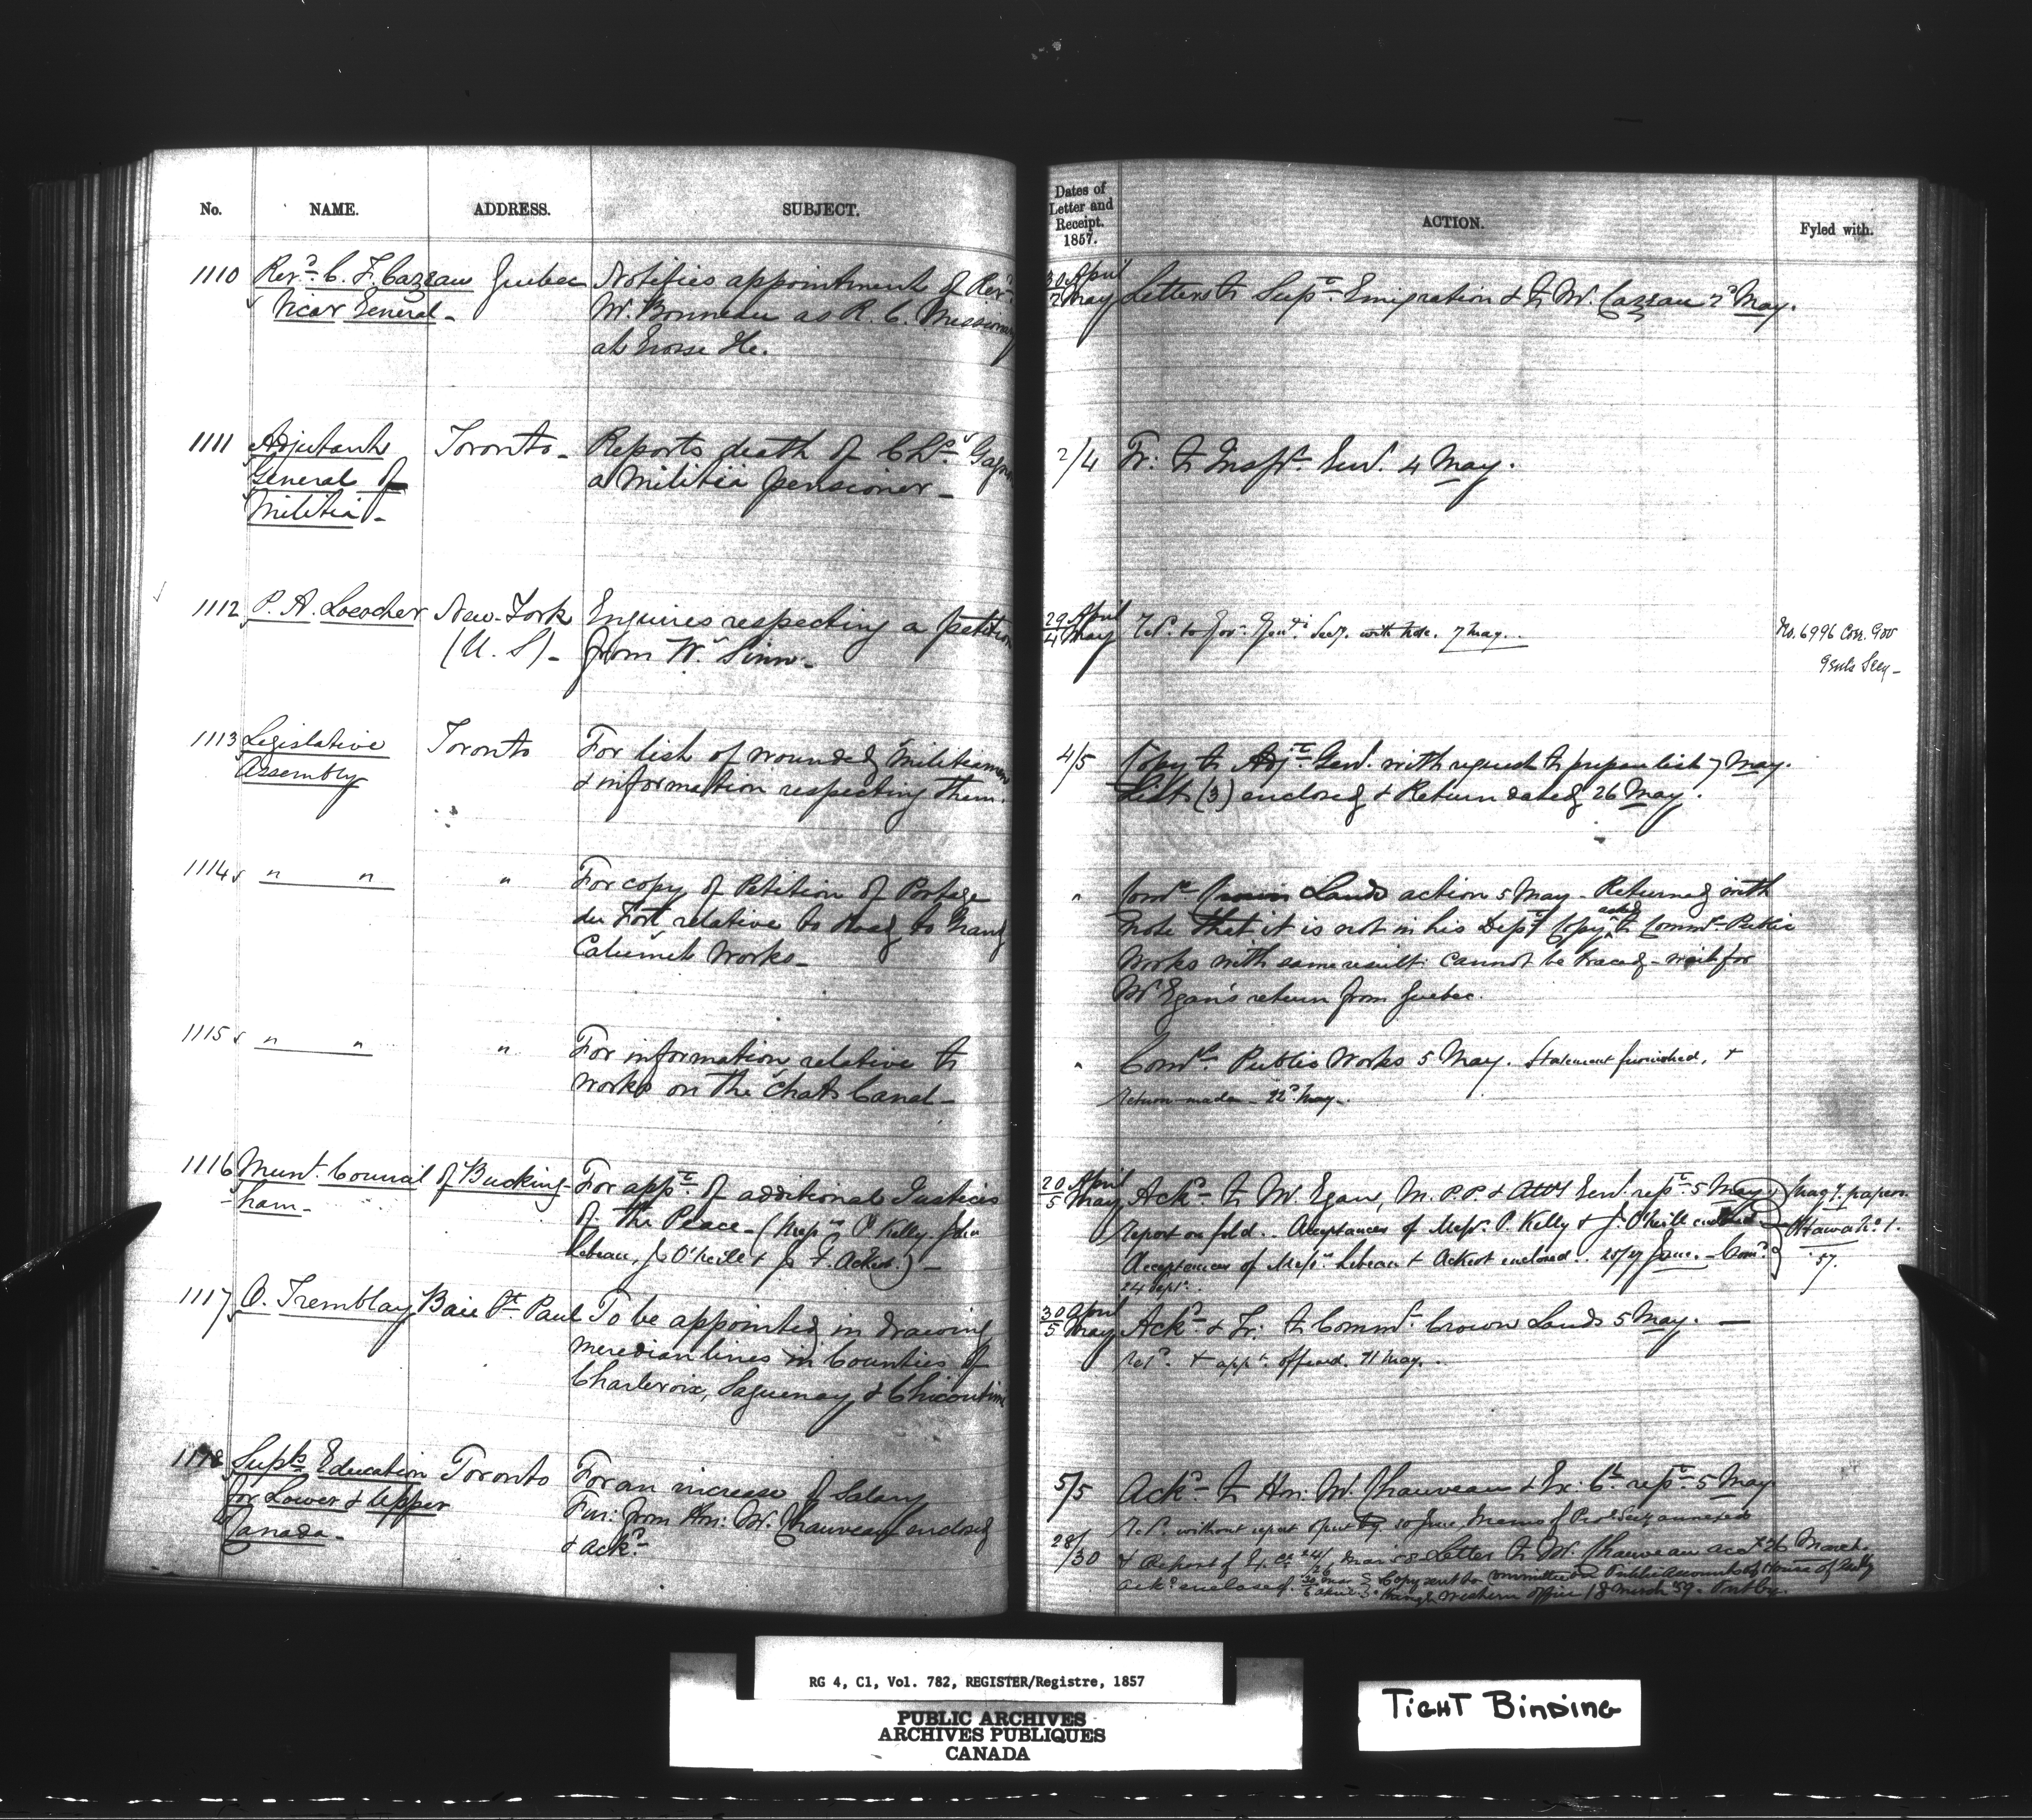 No. NAME. ADDRESS. SUBJECT.
Dates of
Letter and
Receipt.
1857.
ACTION. Fyled with.
1110 Revd. C. F. Cazeau Quebec Notifies appointment of Revd.
Vicar General - Mr. Bonneau as R. C. Missionary
at Grosse Ile.
30 April
2 May
Letters to Supt. Emigration & to Mr. Cazeau 2d May.
1111 Adjutant Toronto - Reports death of Chs.
General of a Militia pensioner -
Militia -
2/4 Fr: to Inspr. Genl. 4 May.
1112 P. A. Lococher New-York Enquires respecting a petition
(U. S) - from W. Sinn -
29 April
4 May
Refd. to Govr. Genl's Secy. with note. 7 May.
No. 6996 Corr. Gov
Genls Secy -
1113 Legislative Toronto For list of wounded Militiamen
Assembly & information respecting them.
4/5 Copy to Adjt. Genl. with request to prepare list 7 May.
Lists (3) enclosed & Return dated 26 May.
1114 " " " For copy of Petition of Portage
du Fort relative to road to Grand
Calumet Works -
" Comr. Crown Lands action 5 May - Returned with
note that it is not in his Dept. Copy asked to Commr. Public
Works with same result: cannot be traced - wait for
Mr Egan's return from Quebec.
1115 " " " For information relative to
works on the Chats Canal -
" Comr. Public Works 5 May. Statement furnished, &
return made - 22d May -
1116 Munl. Council of Bucking- For appt. of additional Justices
ham - of the Peace - (Messrs P Kelly, John
Lebeau, J. O'Neill & J. F. Ackert.) -
20 April
5 May
Ackd. to Mr. Egan, M.P.P & Atty Genl. rept. 5 May.
Report on fold. Acceptances of Messrs. P. Kelly & J. O'Neill enclosed
Acceptances of Messrs. Lebeau & Ackert enclosed. 25/27 June. Comn.
24 Sept.
Magy. papers.
Ottawa No. 1.
57.
1117 O. Tremblay Baie St. Paul To be appointed in drawing
meridian lines in Counties of
Charlevoix, Saguenay & Chicoutimi
30 April
5 May
Ackd. & Fr: to Commr. Crown Lands 5 May. -
Retd. & appt. offered. 11 May.
1118 Supts Education Toronto For an increase of Salary
for Lower & Upper Fur: from Hon: Mr. Chauveau enclosed
Canada - & ackd.
5/5 Ackd. to Hon: Mr. Chauveau & Ex: Cl. rept. 5 May
Retd. without report 30 June Memo of Prov Secy annexed
28/30 & Report of Ex. Cl. 24/26 Mar. 58 Letter to Mr. Chauveau acct 26 March.
ackd. enclosed. Copy sent to Committee on Public Accounts of House of Assbly
through Western office 18 March 59. Put by.
RG 4, C1, Vol. 782, REGISTER/Registre, 1857
PUBLIC ARCHIVES
ARCHIVES PUBLIQUES
CANADA
TIGHT BINDING